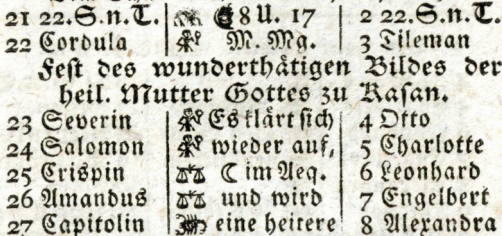 21 22.S.n.T. ☾ 8 U. 17 2 22.S.n.T.
22 Cordula M. Mg. 3 Tileman
Fest des wunderthätigen Bildes der
heil. Mutter Gottes zu Kasan.
23 Severin Es klärt sich 4 Otto
24 Salomon wieder auf, 5 Charlotte
25 Crispin ☾ im Aeq. 6 Leonhard
26 Amandus und wird 7 Engelbert
27 Capitolin eine heitere 8 Alexandra